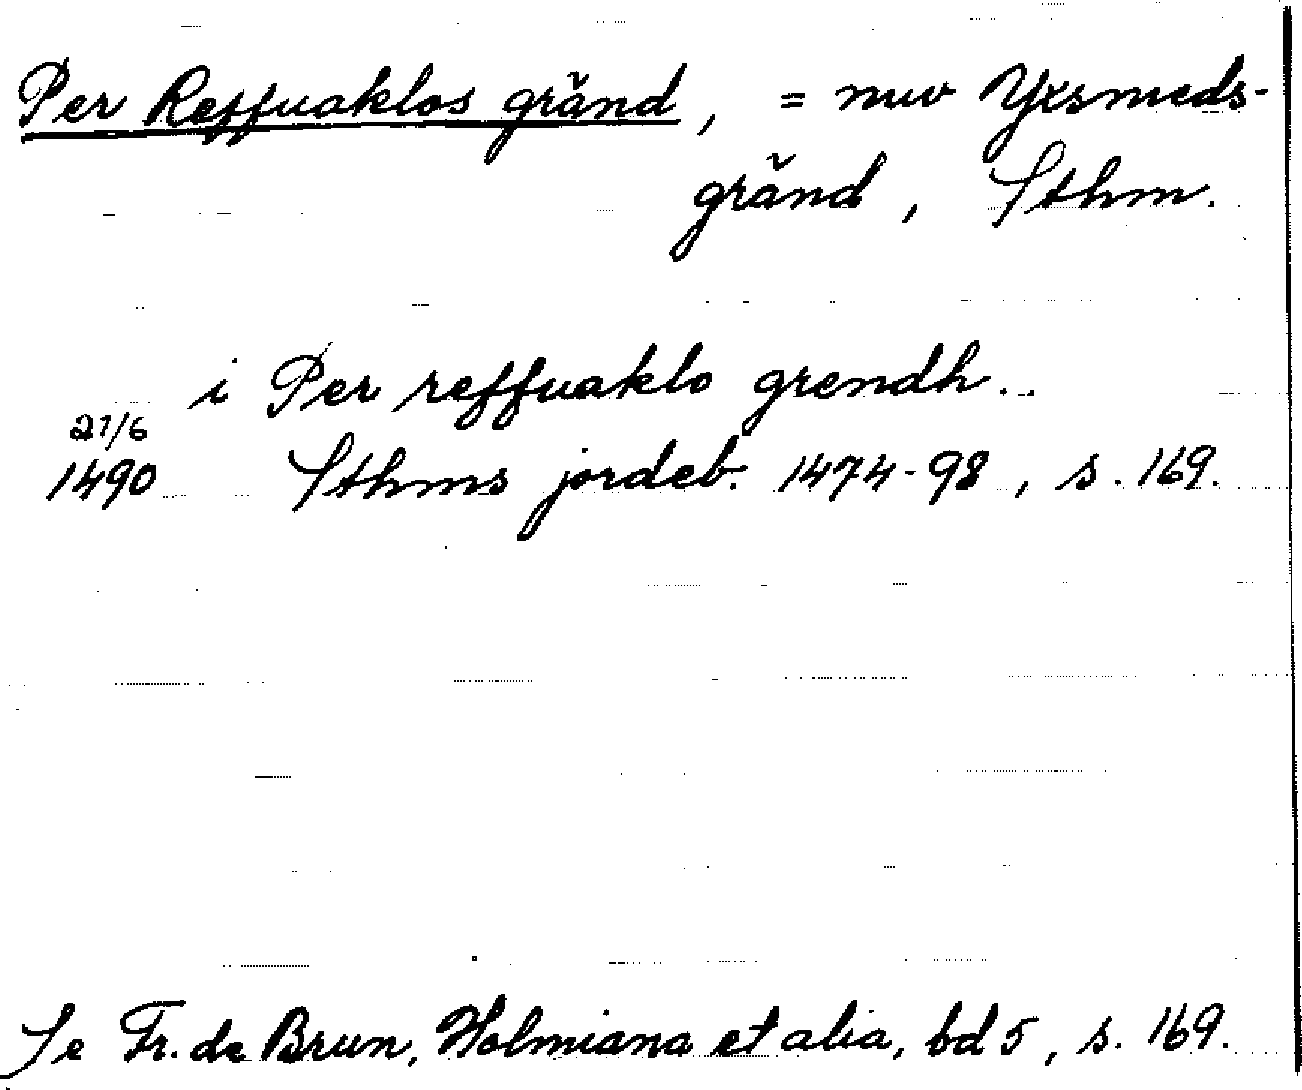 Per Reffuaklos gränd, = nuv Yxsmeds-
gränd, Sthm.
i Per reffuaklo grendh..
21/6
1490 Sthms jordeb. 1474-98, s. 169.
Se Fr. de Brun, Holmiana et alia, bd 5, s. 169.